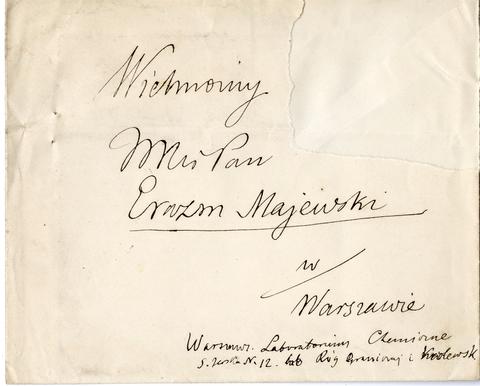 Wielmożny
WMś Pan
Erazm Majewski
w
Warszawie
Warszawa. Laboratorium Chemiczne
N. 12. Róg Granicznej i Królewsk